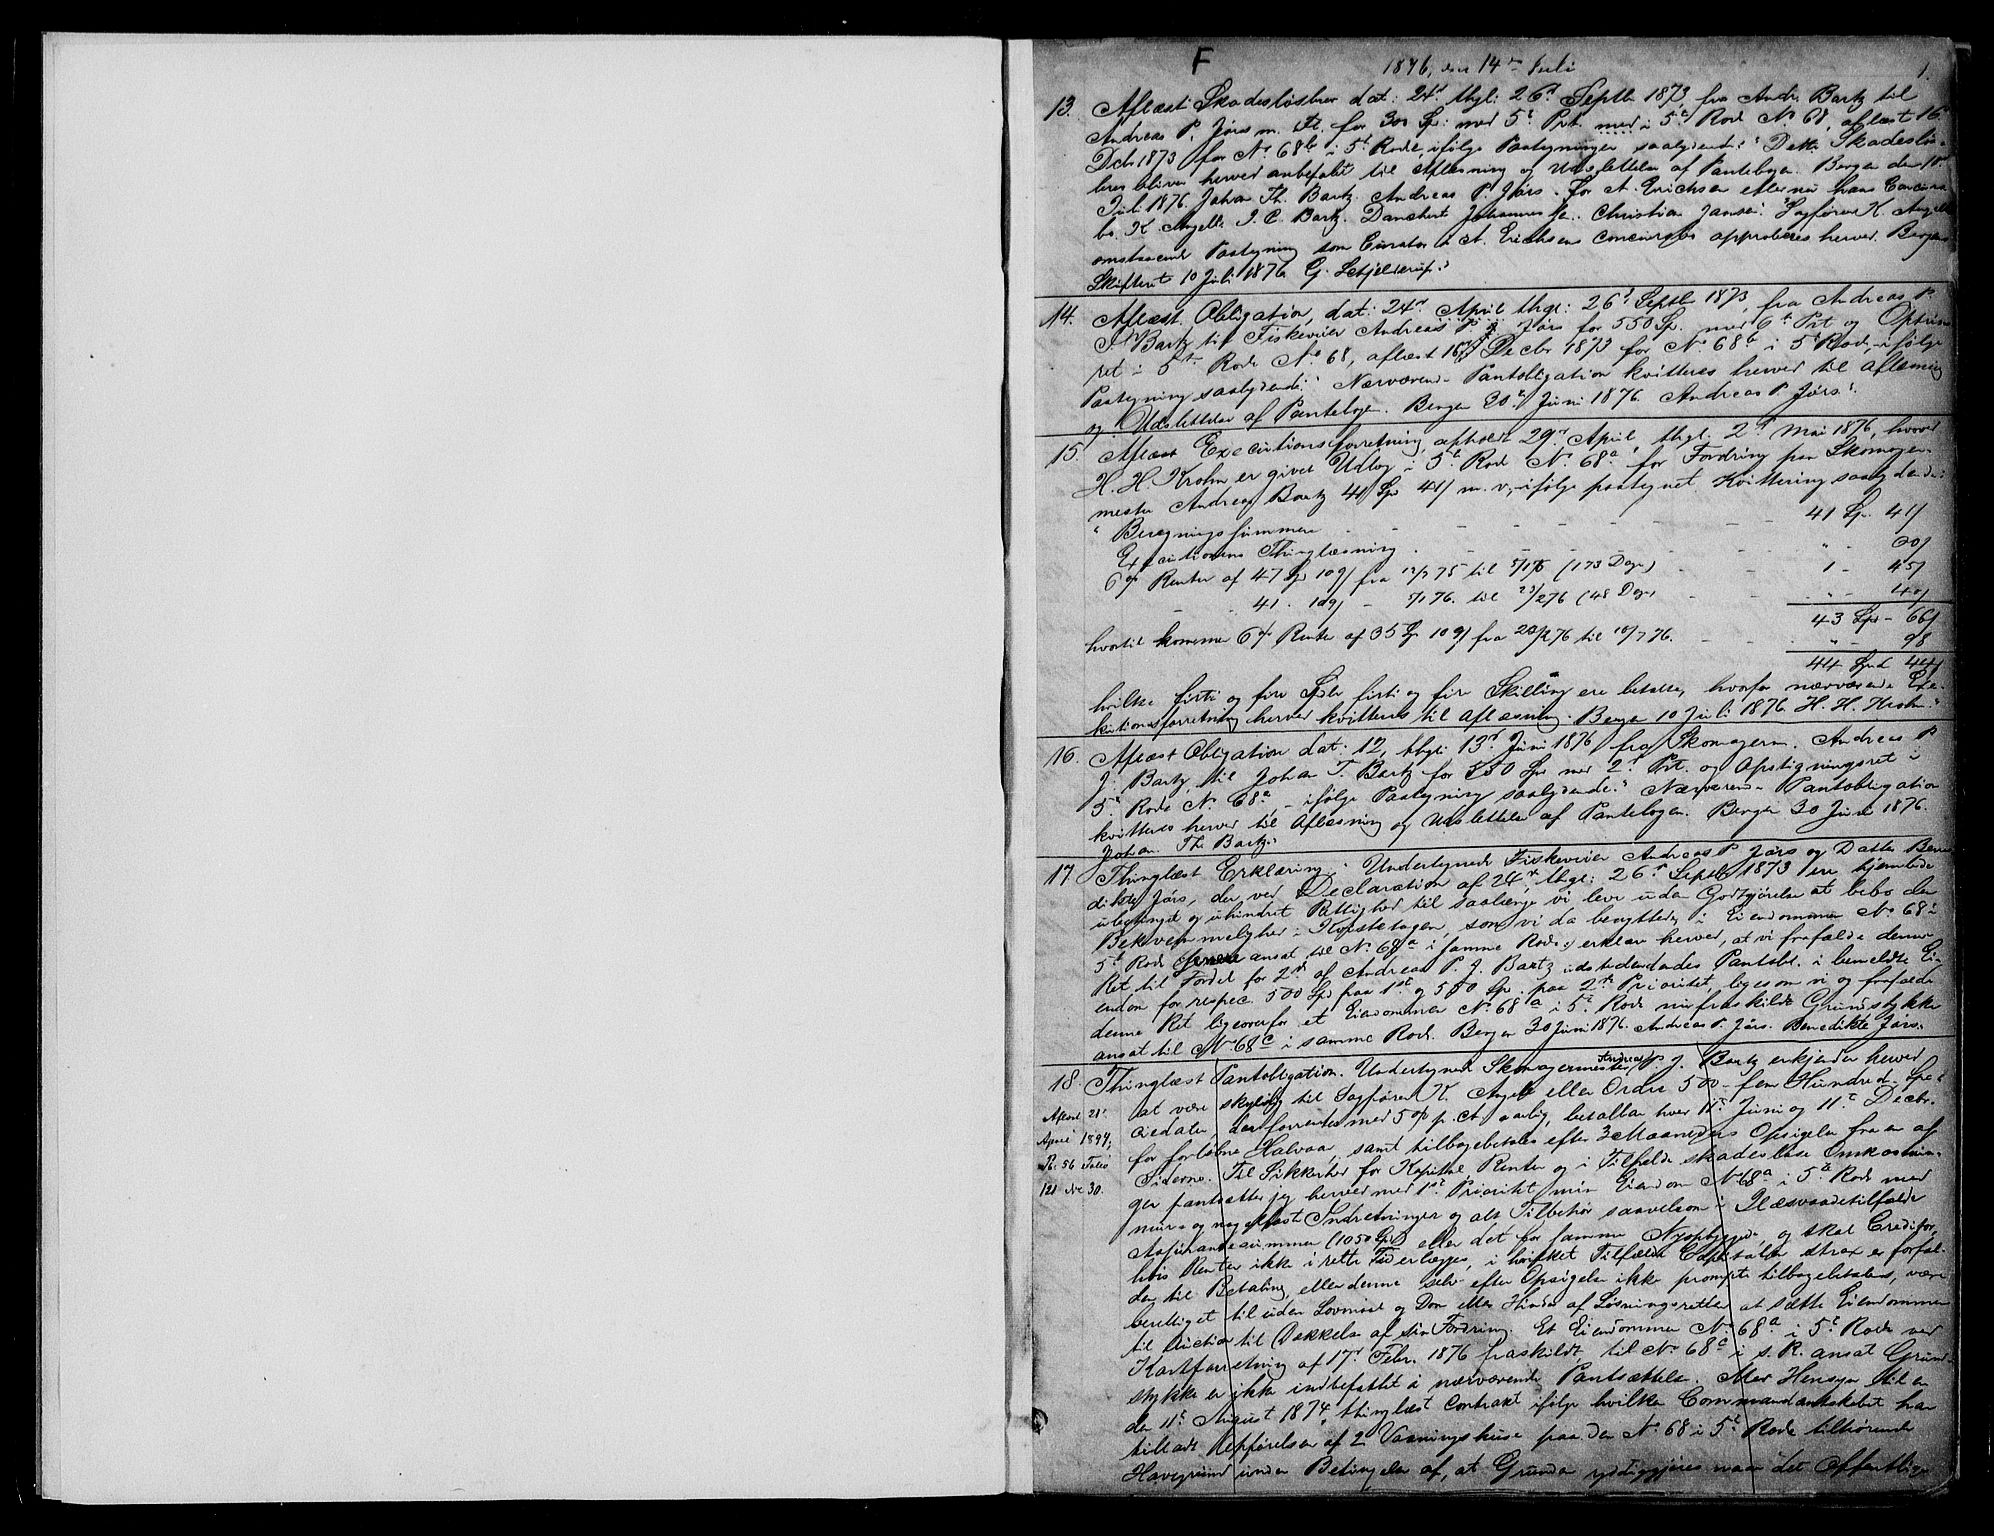 F
1876, den 14de Juli
1.
13. Aflæst Skadesløsbrev dat: 24d thgl: 26d Septb 1873, fra Andr. Bartz til
Andreas P. Jårs m. Fl. for 300 Sp: med 5t Prt. med i 5t Rode No 68, aflæst 16d
Decbr 1873 for No 68b i 5t Rode, ifølge Paategninger saalydende: "Dette Skadesløs-
brev bliver herved anbefalet til Aflæsning og Udslettelse af Pantebogen. Bergen den 10de
Juli 1876. Johan Th. Bartz. Andreas P. Jårs. For A. Erichsen efter hans Concurs-
bo. K. Angell. J. C. Bartz. Danckert Johannesen. Christian Jansen." "Sagfører K. Angells
omstaaende Paategning som Curator i A. Erichsens Concursbo approberes herved. Bergens
Skifteret 10 Juli 1876. G. Schjelderup."
14. Aflæst Obligation, dat: 24d April thgl: 26d Septbr 1873, fra Andreas P.
J. Bartz til Fiskeveier Andreas P. Jårs for 550 Sp. med 6t Prt og Optrins-
ret i 5te Rode No 68, aflæst 16d Decbr 1873 for No 68b i 5t Rode, ifølge
Paategning saalydende: "Nærværende Pantobligation kvitteres herved til Aflæsning
og Udslettelse af Pantebogen. Bergen 30te Juni 1876. Andreas P. Jårs".
15. Aflæst Executionsforretning, afholdt 29d April, thgl. 2d Mai 1876, hvorved
H. H. Krohn er givet Udlæg i 5t Rode No 68a for Fordring paa Skomager-
mester Andreas Bartz 41 Sp 41 m. v., ifølge paategnet Kvittering saalydende:
" Beregningssummen - - - 41 Sp. 41
Executionens Thinglæsning - - - " - 20
6% Renter af 47 Sp 109 fra 12/7 75 til 5/1 76 (173 Dage) - 1 - 45
- - 41 - 109 - 5/1 76 til 23/2 76 (48 Dage) - " - 40
43 Sp - 66
hvortil kommer 6% Renter af 35 Sp 109 fra 23/2 76 til 10/7 76. - " - 98
44 Spd 44
hvilke firti og fire Spdlr firti og fire Skilling ere betalte, hvorfor nærværende Exe-
kutionsforretning herved kvitteres til Aflæsning. Bergen 10 Juli 1876. H. H. Krohn."
16. Aflæst Obligation dat: 12, thgl: 13d Juni 1876 fra Skomagerm. Andreas P.
J. Bartz til Johan T. Bartz for 550 Sp med 2d Prt. og Opstigningsret i
5t Rode No 68a, - ifølge Paategning saalydende: "Nærværende Pantobligation
kvitteres herved til Aflæsning og Udslettelse af Pantebogen. Bergen 30 Juni 1876.
Johan Th. Bartz."
17 Thinglæst Erklæring: Undertegnede Fiskeveier Andreas P. Jårs og Datter Bene-
dikte Jårs, der ved Declaration af 24d, thgl: 26d Septb 1873 ere hjemlede
ubetinget og uhindret Rettighed til saalænge vi leve uden Godtgjørelse at bebo den
Bekvemmelighed i Kvistetagen, som vi da benyttede i Eiendommen No 68 i
5t Rode ansat til No 68a i samme Rode; erklære herved, at vi frafalde denne
Ret til Fordel for 2de af Andreas P. J. Bartz udstedendes Pantobl. i bemeldte Ei-
endom for respec. 500 Sp paa 1st og 500 Sp. paa 2den Prioritet, ligesom vi og frafalde
denne Ret ligeoverfor et Eiendommen No 68a i 5t Rode nu fraskildt Grundstykke
ansat til No 68c i samme Rode. Bergen 30 Juni 1876. Andreas P. Jårs. Benedikte Jårs.
18. Thinglæst Pantobligation. Undertegnede Skomagermester Andreas P. J. Bartz erkjender herved
at være skyldig til Sagfører K. Angell eller Ordre 500 - fem Hundrede Spe-
ciedaler, der forrentes med 5% p. A. aarlig, betalbar hver 11te Juni og 11te Decbr.
for forløbne Halvaar, samt tilbagebetales efter 3 Maaneders Opsigelse fra en af
Siderne. Til Sikkerhed for Kapital Renter og i Tilfælde skadesløse Omkostnin-
ger pantsætter jeg herved med 1ste Prioritet min Eiendom No 68a i 5t Rode med
mur- og nagelfast Indretninger og alt Tilbehør saavelsom i Ildsvaadetilfælde
Assurancesummen (1050 Spd) eller det for samme Nyopbyggede, og skal Creditor,
hvis Renter ikke i rette Tid erlægges, i hvilket Tilfælde Capitalen strax er forfal-
den til Betaling, eller denne selv efter Opsigelse ikke prompte tilbagebetales, være
berettiget til uden Lovmaal og Dom eller Hinder af Løsningsretten at sætte Eiendommen
til Auction til Dækkelse af sin Fordring. Et Eiendommen No 68a i 5t Rode ved
Kartforretning af 17d Febr. 1876 fraskildt, til No 68c i s. R. ansat Grund-
stykke er ikke indbefattet i nærværende Pantsættelse. Med Hensyn til en
den 11te August 1874 thinglæst Contrakt ifølge hvilken Commandantskabet har
tilladt Opførelsen af 2 Vaaningshuse paa den No 68 i 5t Rode tilhørende
Havegrund under Betingelse af, at Grunden ryddiggjøres naar det Offentlige
Aflæst 21d
April 1894,
Pb. 56 Folio
121 No 30.